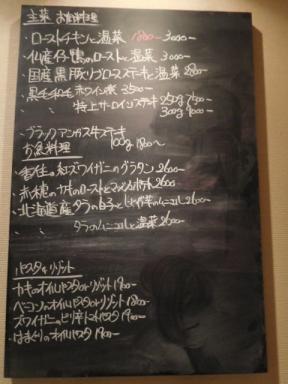 主菜 お肉料理
・ローストチキンと温菜 1800ー 3000ー
・仙産仔鴨のローストと温菜 3000ー
・国産黒豚リブロースステーキと温菜 2800ー
・黒毛和牛ホホ赤ワイン煮 3500ー
・〃 〃 特上サーロインステーキ 250g 7500ー
300g 9000ー
・ブラックアンガス牛ステーキ
100g 1800〜
お魚料理
・香住の紅ズワイガニのグラタン 2600ー
・赤穂のカキのローストと 2600ー
・北海道産タラの白子と のムニエル 2600ー
・〃 〃 タラのムニエルと温菜 2600ー
パスタ&リゾット
カキのオイルパスタorリゾット 1900ー
ベーコンのオイルパスタorリゾット 1800ー
ズワイガニのピリ辛トマトパスタ 1900ー
はまぐりのオイルパスタ 1900ー